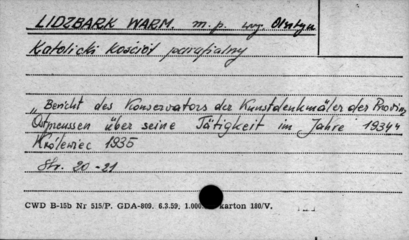 LIDZBARK WARM. m. p. woj. Olsztyn
Katolicki kościół parafialny
„Bericht des Konservators der Kunstdenkmäler der Provinz
Ostpreussen über seine Tätigkeit im Jahre 1934"
Królewiec 1935
Str. 20-21
CWD B-15b Nr 515/P. GDA-809. 6.3.59. 1.000 karton 180/V.